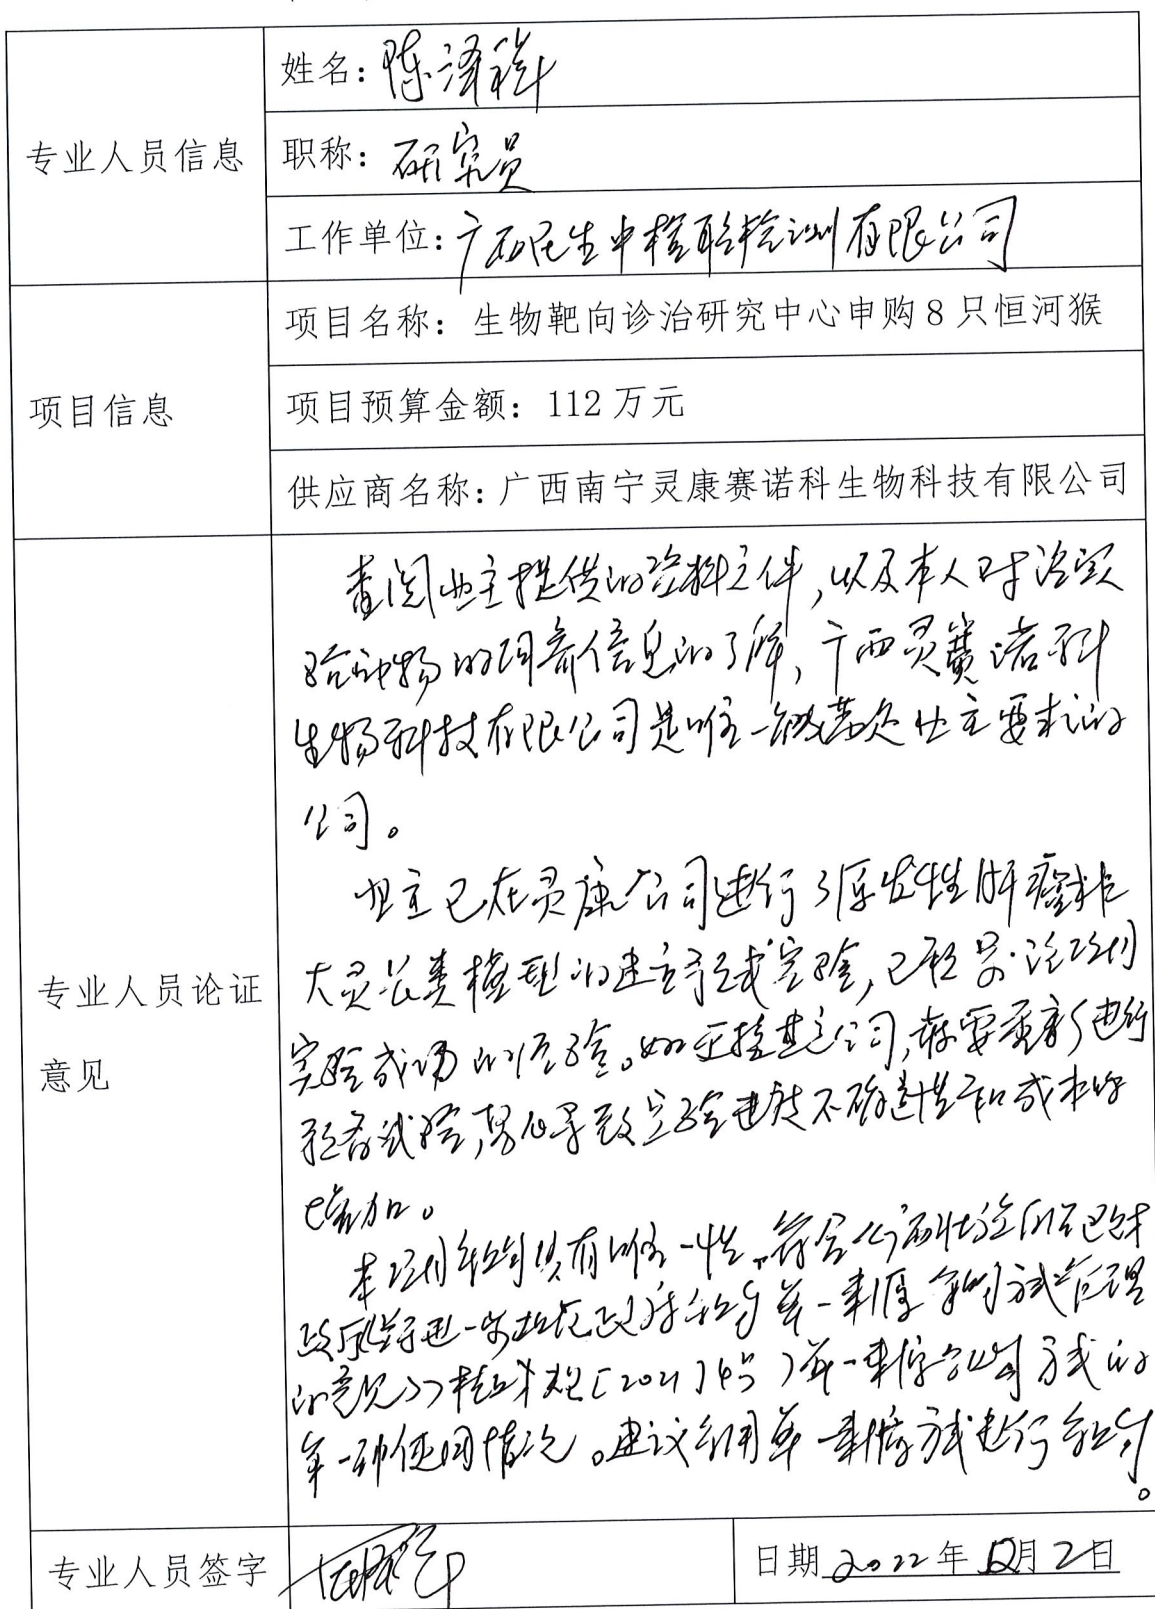 专业人员信息
姓名：陈泽
职称：研究员
工作单位：广西民生中检联检测有限公司
项目信息
项目名称：生物靶向诊治研究中心申购8只恒河猴
项目预算金额：112万元
供应商名称：广西南宁灵康赛诺科生物科技有限公司
专业人员论证
意见
查阅业主提供的资料文件，以及本人对该实
验动物的信息的了解，广西灵赛诺科
生物科技有限公司是唯一能满足业主要求的
公司。
业主已在灵康公司进行了原发性肝癌非
人灵长类模型的建立预试实验，已积累该项目
实验成功的经验。如更换其它公司，需要重新进行
预备试验，导致实验进度不确定性和成本的
增加。
本项目采购具有唯一性。符合《广西壮族自治区财
政厅关于进一步规范政府采购单一来源采购方式管理
的意见》桂财规〔2021〕4号）单一来源采购方式的
第一种使用情况。建议采用单一来源方式进行采购。
专业人员签字
日期 2022年12月2日